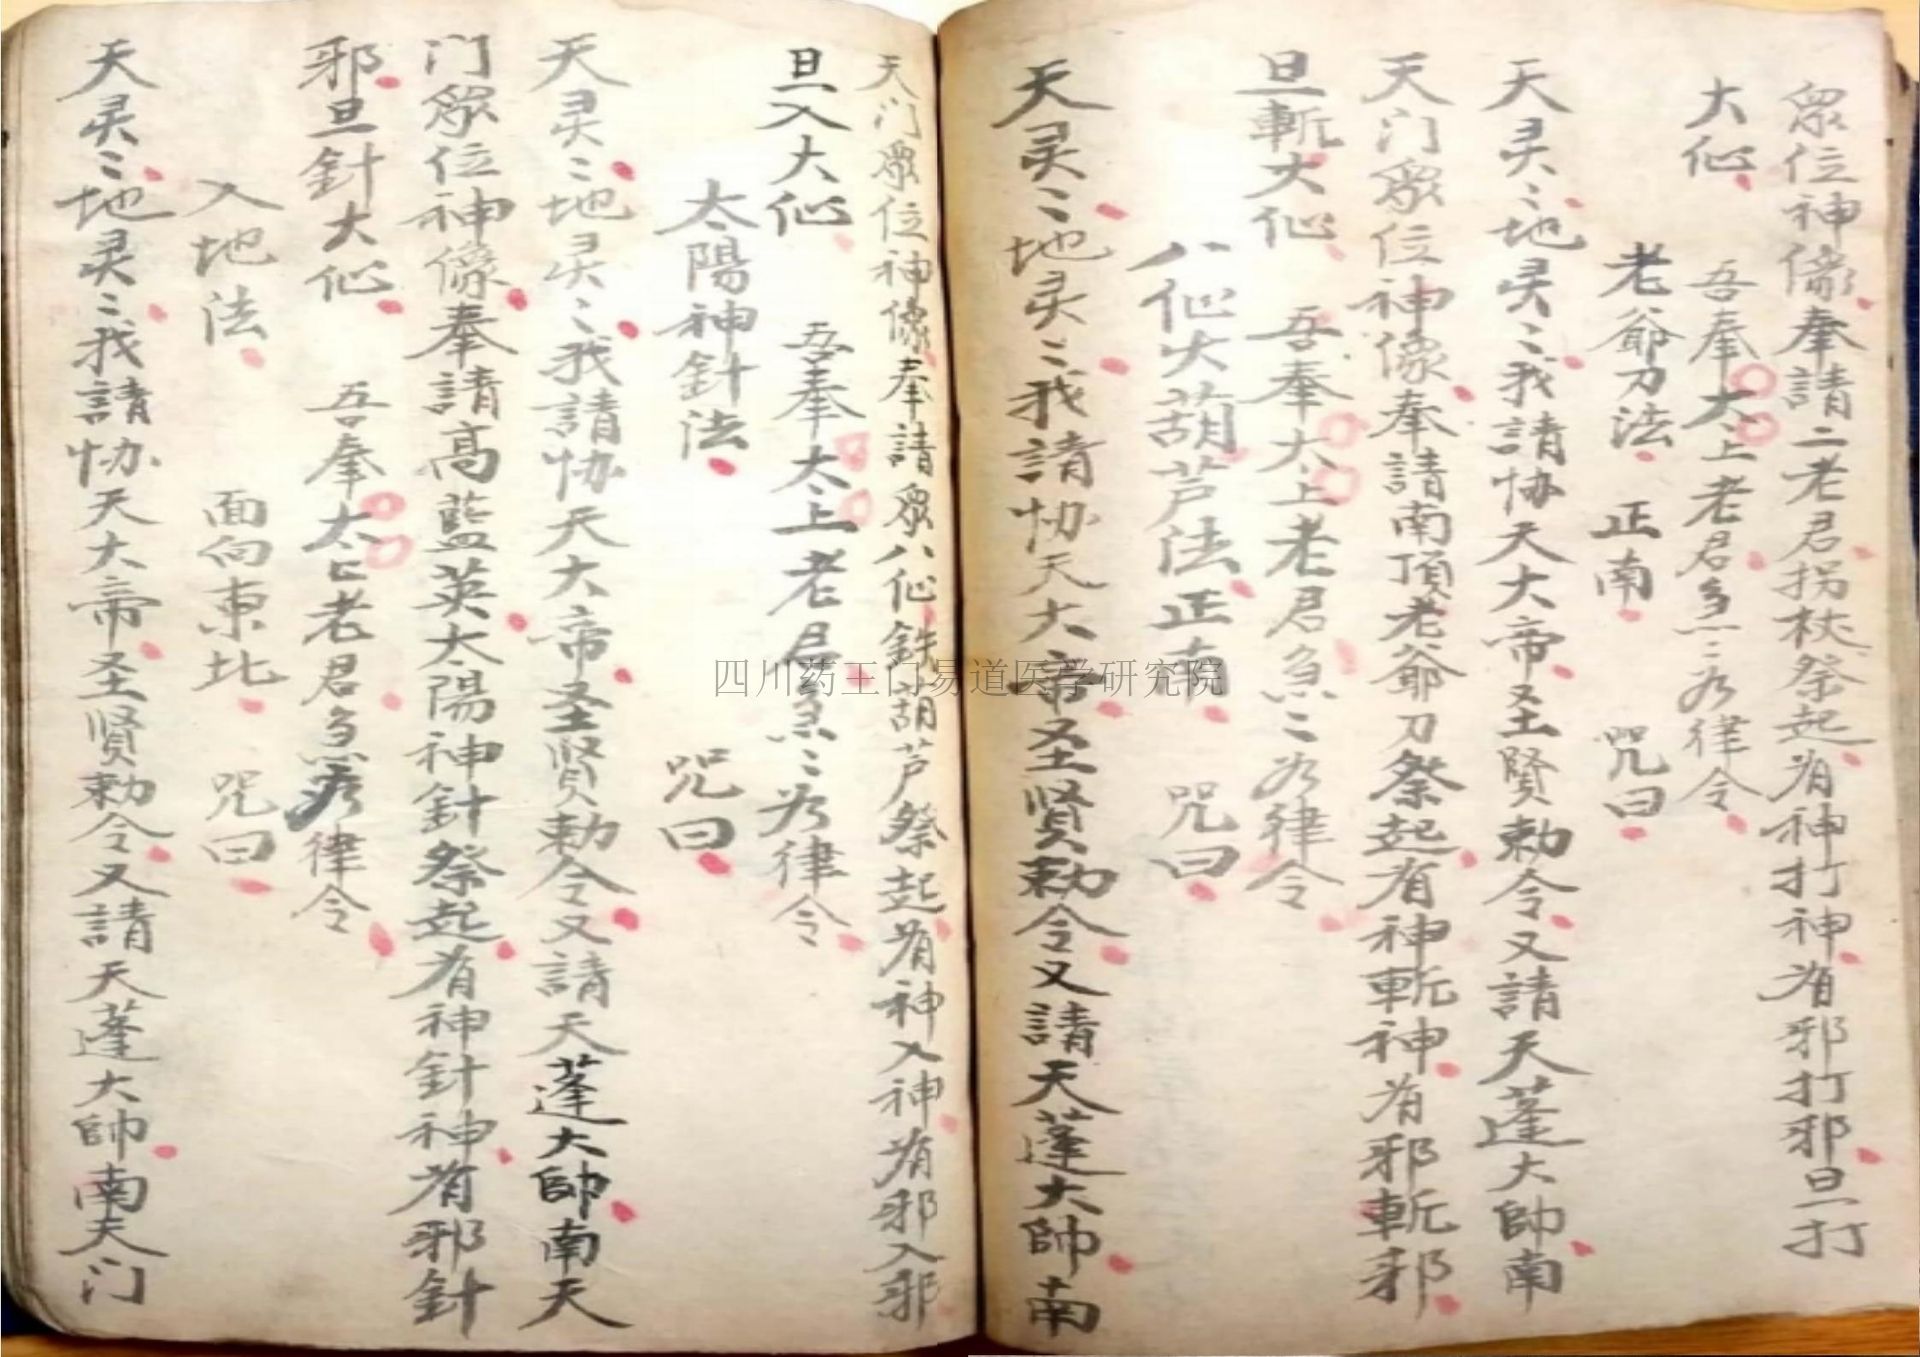 眾位神像奉請二老君拐杖祭起有神打神有邪打邪旦打
大仙 吾奉太上老君急〻为律令
老爺刀法 正南 咒曰
天灵〻地灵〻我請协天大帝圣賢勅令又請天蓬大帥南
天门眾位神像奉請南頂老爺刀祭起有神斬神有邪斬邪
旦斬大仙 吾奉太上老君急〻为律令
八仙大葫芦法正南 咒曰
天灵〻地灵〻我請协天大帝圣贤勅令又請天蓬大帥南
天门眾位神像奉請眾八仙鉄葫芦祭起有神入神有邪入邪
旦入大仙 吾奉太上老君急〻为律令
太陽神針法 咒曰
天灵〻地灵〻我請协天大帝圣贤勅令又請天蓬大帥南天
门眾位神像奉請高藍英太陽神針祭起有神針神有邪針
邪旦針大仙 吾奉太上老君急为律令
入地法 面向東北 咒曰
天灵〻地灵〻我請协天大帝圣贤勅令又請天蓬大帥南天门
四川药王门易道医学研究院